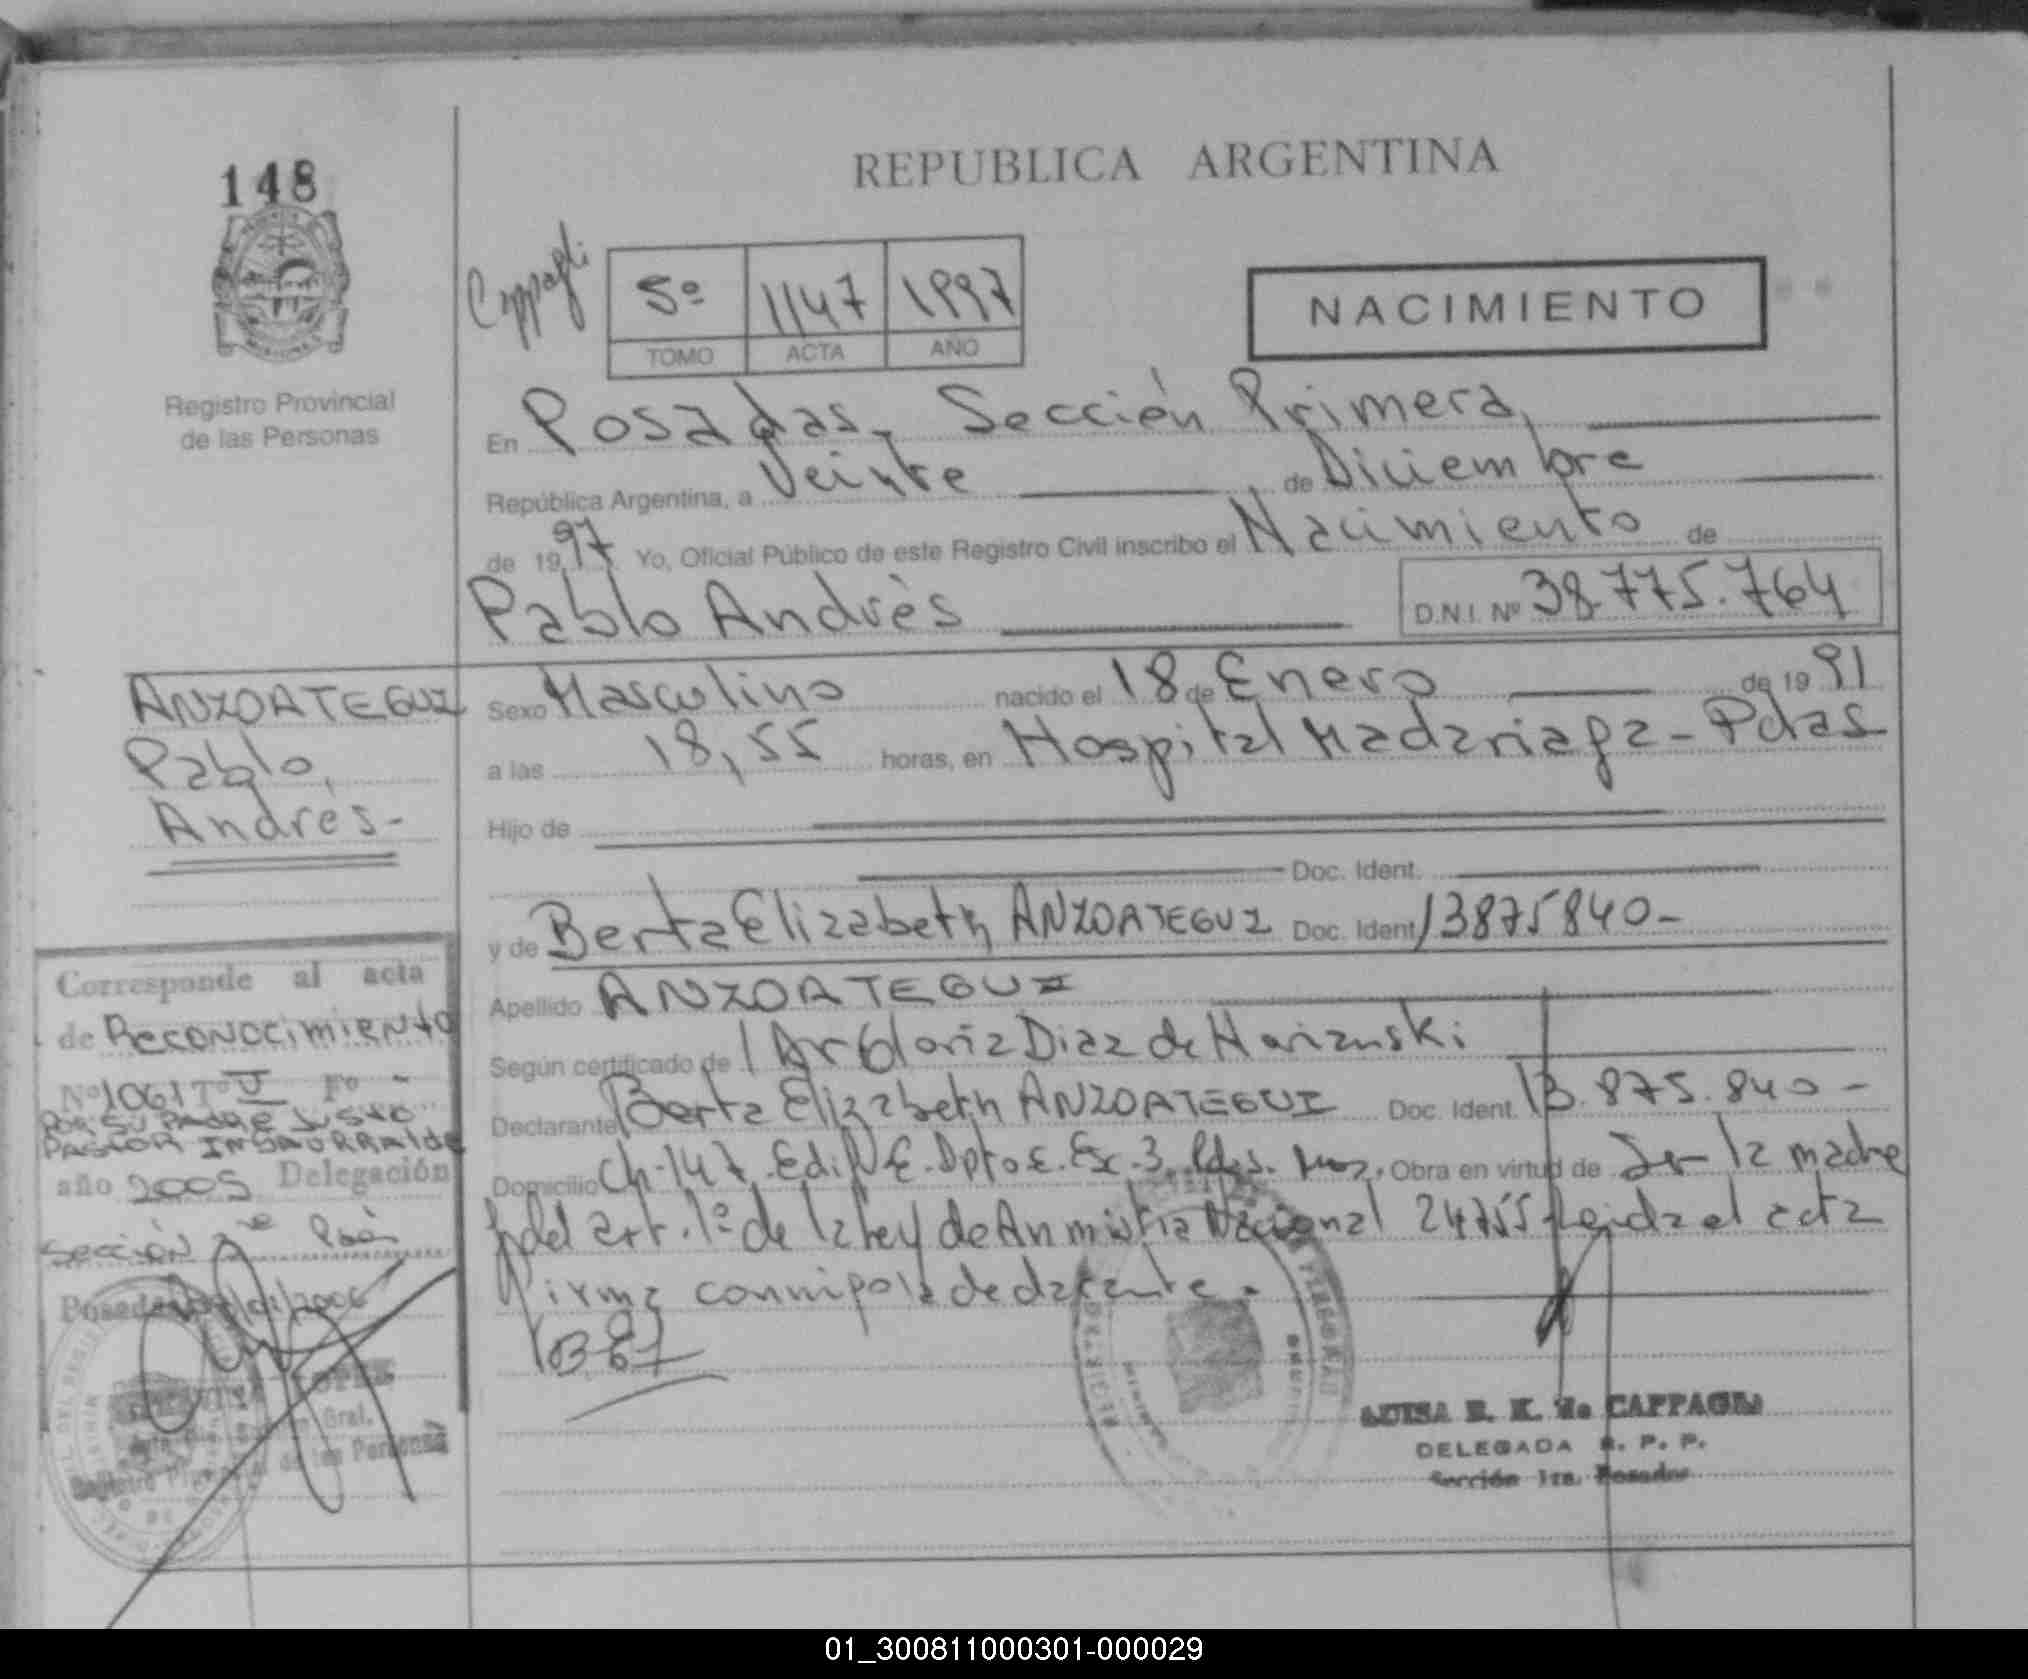 148
REPUBLICA ARGENTINA
Registro Provincial
de las Personas
5º 1147 1997
TOMO ACTA AÑO
NACIMIENTO
En Posadas, Sección Primera,
República Argentina, a Veinte de Diciembre
de 1997 Yo, Oficial Público de este Registro Civil inscribo el Nacimiento de
Pablo Andrès D.N.I. Nº 38.775.764
ANZOATEGUI
Pablo,
Andrés-
Sexo Masculino nacido el 18 de Enero de 1991
a las 18,55 horas, en Hospital Madariaga - Pdas
Hijo de
Doc. Ident.
y de Berta Elizabeth ANZOATEGUI Doc. Ident 13875840-
Apellido ANZOATEGUI
Según certificado de Gloria Diaz de Marianski
Declarante Berta Elizabeth ANZOATEGUI Doc. Ident. 13.875.840-
Domicilio Ch-147 Edif E. Dpto E. Esc. 3 Pdas. Mnes. Obra en virtud de Ser la madre
y del art. 1º de la ley de Anmistia Nacional 24755 Leida el acta
firma conmigo la declarante.
Corresponde al acta
de Reconocimiento
Nº 1061 Tº V Fº -
POR SU PADRE JUSTO
PASTOR INSAURRALDE
año 2005 Delegación
Sección
Posadas 2006
LOPEZ
Gral.
Registro Provincial de las Personas
LUISA E. K. de CAPPAGLI
DELEGADA R. P. P.
Sección 1ra. Posadas
01_300811000301-000029